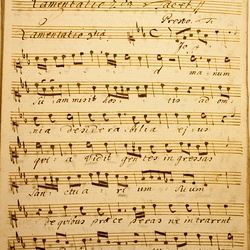 Lamentatio 2da
Lamentatio 2da
Jod manum
Suam misit hostis ad om-
nia desiderabilia ejus
quia vidit gentes ingressas
Sanctuarium Suum
de quibus praeceperas ne intrarent